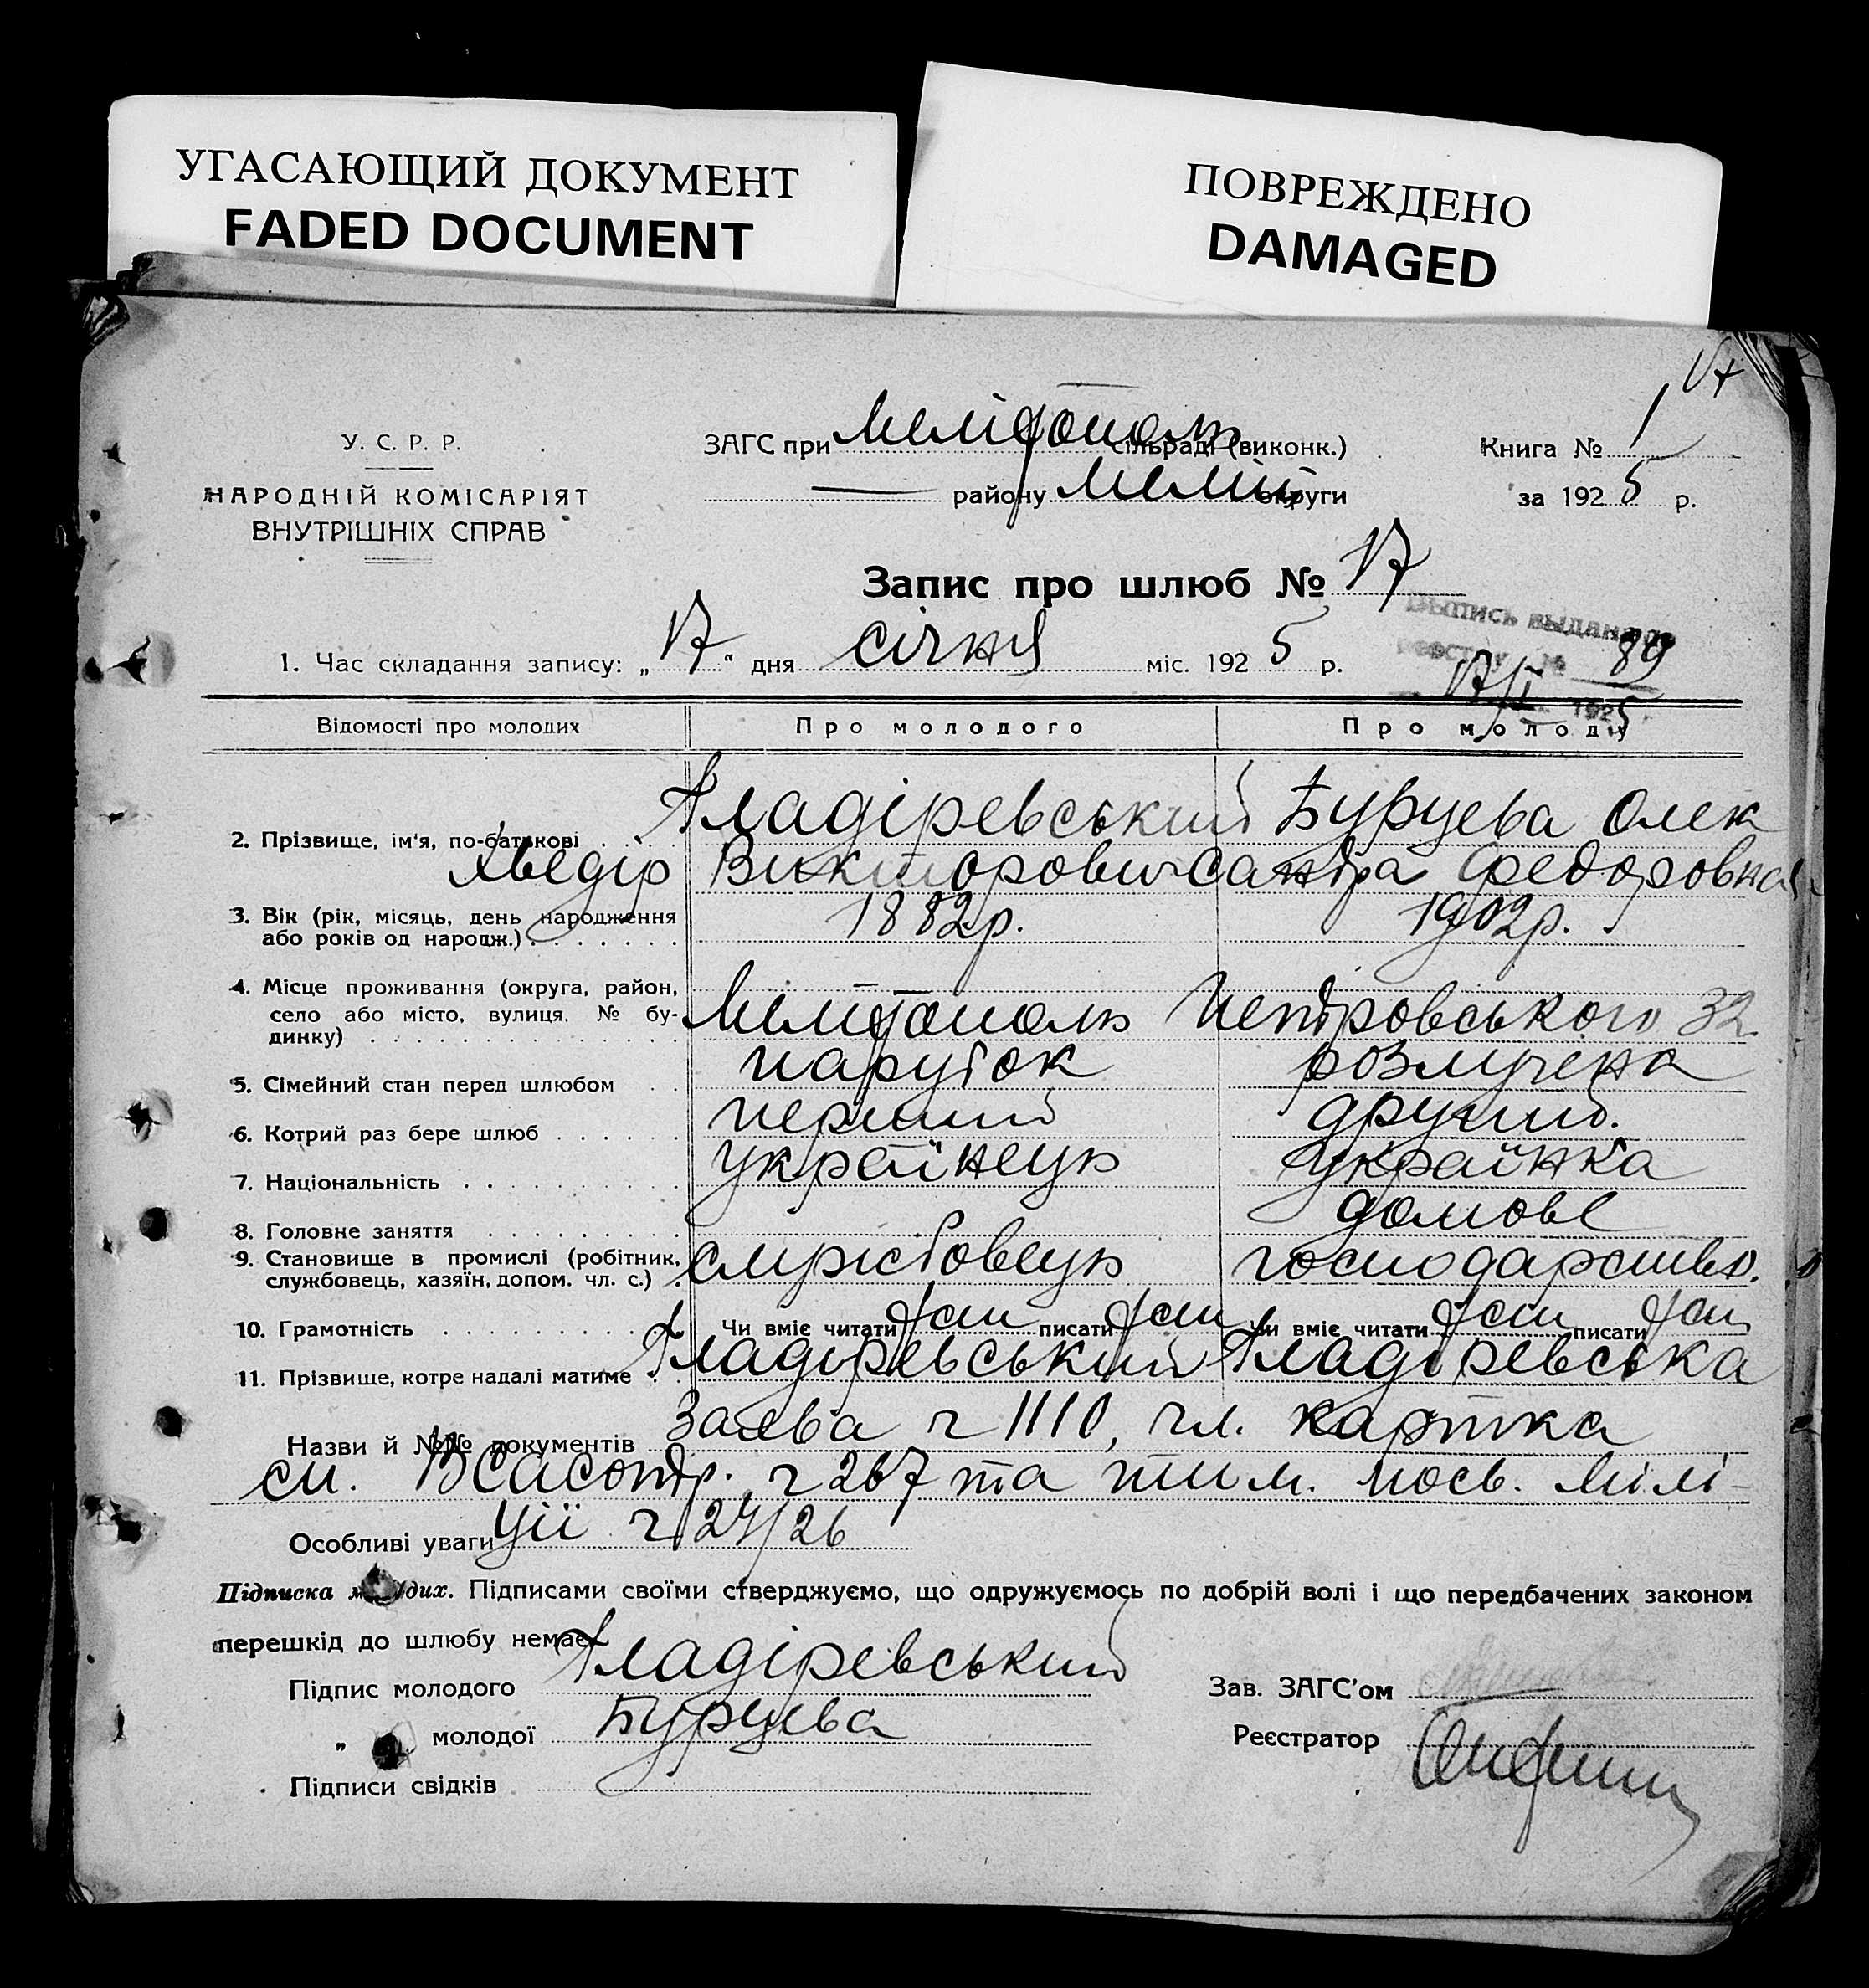 УГАСАЮЩИЙ ДОКУМЕНТ
FADED DOCUMENT
ПОВРЕЖДЕНО
DAMAGED
17
У. С. Р. Р.
НАРОДНІЙ КОМІСАРІЯТ
ВНУТРІШНІХ СПРАВ
ЗАГС при Мелітополь сільраді (виконк.)
— району Меліт округи
Книга № 1
за 1925 р.
Запис про шлюб № 17
Выпись выдана
реестру № 89
17/I 1925
1. Час складання запису: „17“ дня січня міс. 1925 р.
Відомості про молодих
Про молодого
Про молоду
2. Прізвище, ім'я, по-батькові . . . .
Гладіревський Бурцева Олек
Хведір Вікторович сандра Федоровна
3. Вік (рік, місяць, день народження або років од народж.) . . . . . . . 1882р. 1902р.
4. Місце проживання (округа, район, село або місто, вулиця, № будинку) . . . Мелітополь Петровського 32
5. Сімейний стан перед шлюбом . . парубок розлучена
6. Котрий раз бере шлюб . . . . . . перший другий.
7. Національність . . . . . . . . . . українець українка
8. Головне заняття . . . . . . . . . домове
9. Становище в промислі (робітник, службовець, хазяїн, допом. чл. с.) . службовець господарство.
10. Грамотність . . . . . . . . . . . Чи вміє читати так писати так Чи вміє читати так писати так
11. Прізвище, котре надалі матиме . . Гладіревський Гладіревська
Назви й №№ документів Заява ч 1110, чл. картка
сп. ч 267 та тим. посв. мілі-
Особливі уваги ції ч 24/26
Підписка молодих. Підписами своїми стверджуємо, що одружуємось по добрій волі і що передбачених законом
перешкід до шлюбу немає.
Підпис молодого Гладіревський
„ молодої Бурцева
Підписи свідків
Зав. ЗАГС'ом
Реєстратор